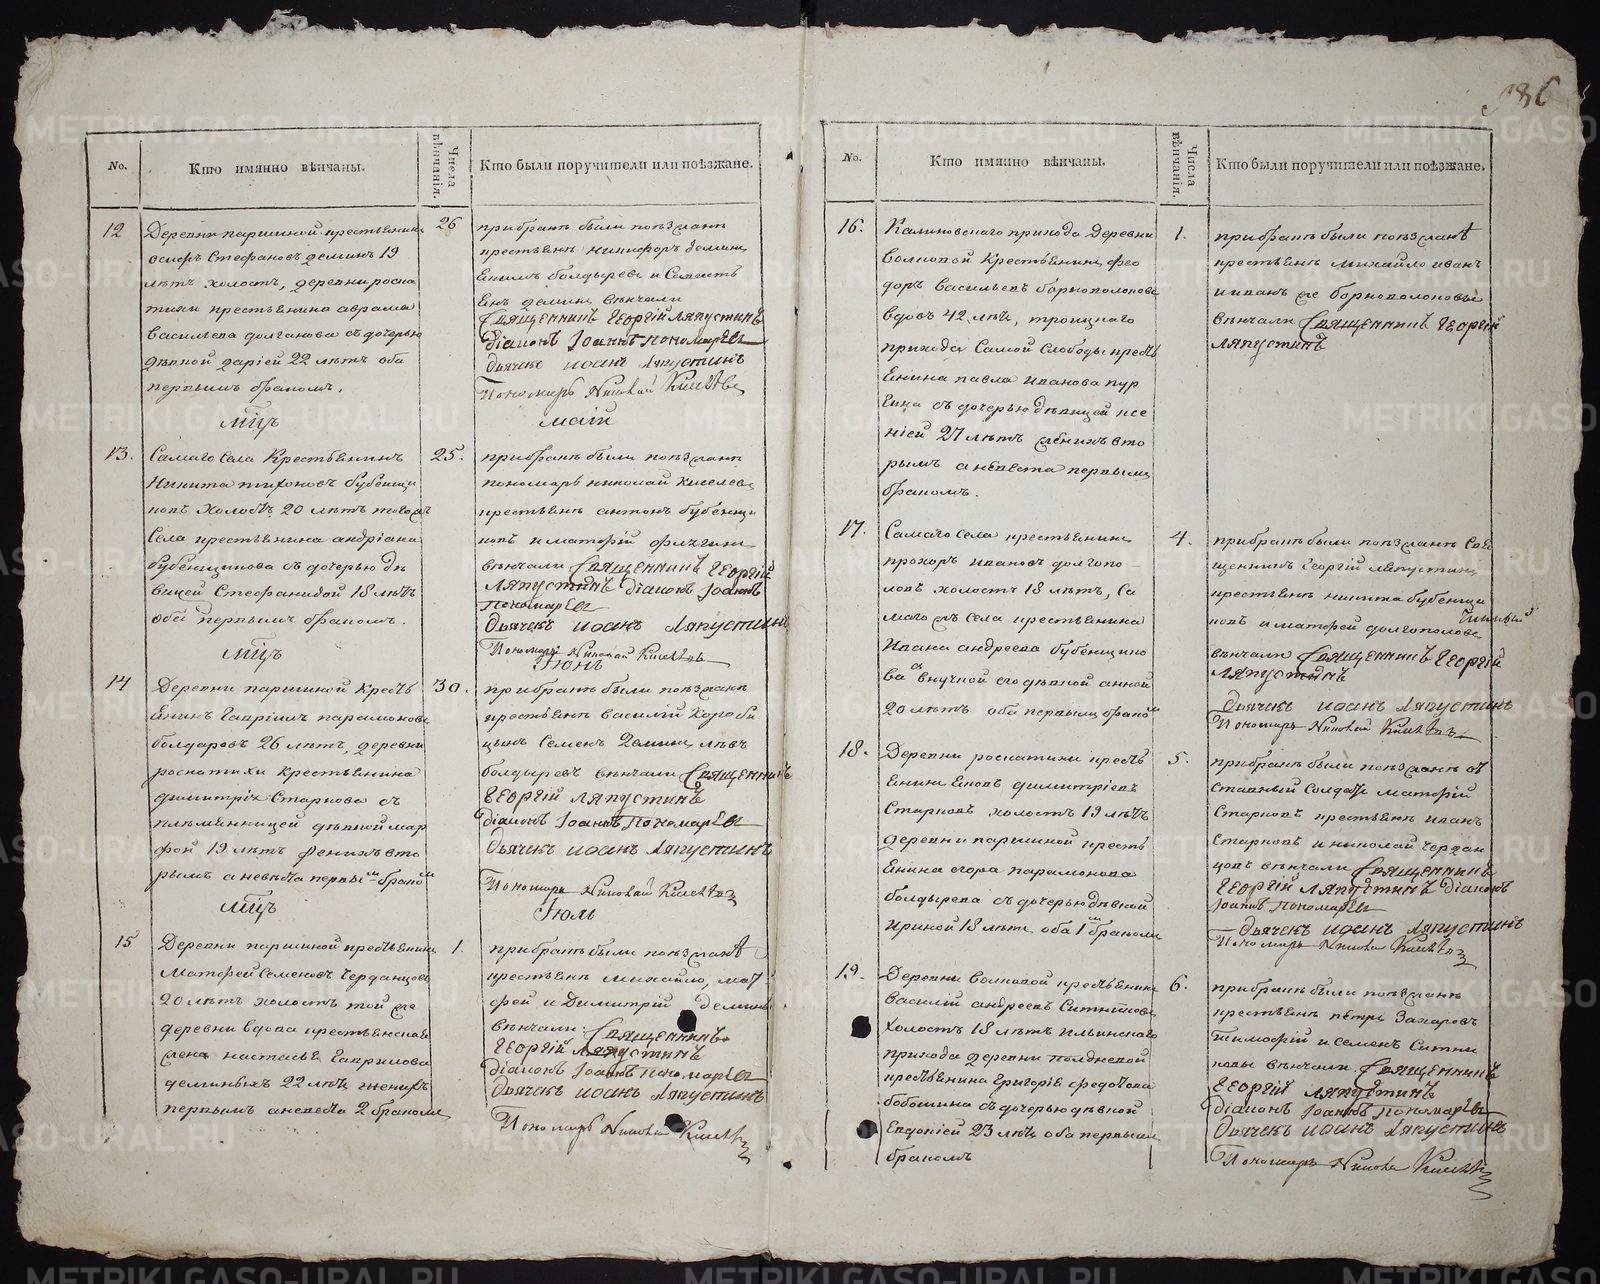 186
No.
Кто имянно вѣнчаны.
Числа вѣнчанія.
Кто были поручители или поѣзжане.
12
Деревни паршиной крестьянинъ
осипъ Стефановъ деминъ 19
лѣтъ холостъ, деревни роска
тихи крестьянина аврама
васильева долганова съ дочерью
дѣвкой даріей 22 лѣтъ оба
первымъ бракомъ.
26
прибракѣ были поѣзжанѣ
крестьянѣ никифоръ деминъ
болдыревъ и
деминъ вѣнчали
Священникъ Георгій Ляпустинъ
Діаконъ Іоаннъ пономаревъ
Дьячекъ иоанъ Ляпустинъ
Пономарь Николай Киселевъ
мцъ
маій
13.
Самаго села Крестьянинъ
Никита тихоновъ бубенщи
ковъ холостъ 20 лѣтъ тогожъ
Села крестьянина андріана
бубенщикова съ дочерью дѣ
вицей Стефанидой 18 лѣтъ
оба первымъ бракомъ.
25.
прибракѣ были поѣзжанѣ
пономарь николай киселевъ
крестьянѣ антонъ бубенщи
ковъ и матфій
вѣнчали Священникъ Георгій
Ляпустинъ Діаконъ Іоаннъ
Пономаревъ
Дьячекъ иоанъ Ляпустинъ
Пономарь Николай Киселевъ
мцъ
Іюнь
14
Деревни паршиной кресть
янинъ Гаврилъ парамоновъ
болдыревъ 26 лѣтъ, деревни
роскатихи крестьянина
димитрія Старкова съ
племянницей дѣвкой мар
фой 19 лѣтъ женихъ вто
рымъ аневѣста первымъ бракомъ
30.
прибракѣ были поѣзжанѣ
крестьянѣ василій Короби
цынъ Семенъ деминъ, левъ
болдыревъ вѣнчали Священникъ
Георгій Ляпустинъ
Діаконъ Іоаннъ Пономаревъ
Дьячекъ иоанъ Ляпустинъ
Пономарь Николай Киселевъ
мцъ
Іюль
15
Деревни паршиной крестьянинъ
Матфей Семеновъ Черданцовъ
20 лѣтъ холостъ той же
деревни вдова крестьянская
жена настасья Гаврилова
деминыхъ 22 лѣтъ женихъ
первымъ аневѣста 2 бракомъ
1.
прибракѣ были поѣзжанѣ
крестьянѣ михайло, мат
фей и Димитрій демины
вѣнчали: Священникъ
Георгій Ляпустинъ
Діаконъ Іоаннъ пономаревъ
Дьячекъ иоанъ Ляпустинъ
Пономарь Николай Киселевъ
No.
Кто имянно вѣнчаны.
Числа вѣнчанія.
Кто были поручители или поѣзжане.
16.
Калиновскаго прихода Деревни
волковой Крестьянинъ фео
доръ васильевъ борноволоковъ
вдовъ 42 лѣтъ, троицкаго
прихода Самой Слободы кресть
янина павла иванова пур
съ дочерью дѣвицей ксе
ніей 27 лѣтъ женихъ вто
рымъ а невѣста первымъ
бракомъ.
1.
прибракѣ были поѣзжанѣ
крестьянѣ михайло иванъ
и иванъ же борноволоковы
вѣнчали Священникъ Георгій
Ляпустинъ
17.
Самаго села крестьянинъ
прохоръ ивановъ долгопо
ловъ холостъ 18 лѣтъ, Са
магожъ села крестьянина
Ивана андреева бубенщико
ва внучкой его дѣвкой анной
20 лѣтъ оба первымъ бракомъ
4.
прибракѣ были поѣзжанѣ Свя
щенникъ Георгій Ляпустинъ
крестьянѣ никита бубенщи
ковъ и матфей долгополовъ
вѣнчали Священникъ Георгій
Ляпустинъ
Дьячекъ иоанъ Ляпустинъ
Пономарь Николай Киселевъ
18.
Деревни роскатихи кресть
янинъ Яковъ димитріевъ
Старковъ холостъ 19 лѣтъ
деревни паршиной кресть
янина егора парамонова
болдырева съ дочерью дѣвкой
Ириной 18 лѣтъ оба 1м бракомъ
5.
прибракѣ были поѣзжанѣ от
ставный Солдатъ матфій
Старковъ крестьянѣ иванъ
Старковъ и николай Чердан
цовъ вѣнчали Священникъ
Георгій Ляпустинъ Діаконъ
Іоаннъ Пономаревъ
Дьячекъ иоанъ Ляпустинъ
Пономарь Николай Киселевъ
19.
Деревни волковой крестьянинъ
василій андреевъ Ситниковъ
холостъ 18 лѣтъ ильинскаго
прихода деревни полдневой
крестьянина Григорія федотова
бобошина съ дочерью дѣвкой
Евдокіей 23 лѣтъ оба первымъ
бракомъ
6.
прибракѣ были поѣзжанѣ
крестьянѣ петръ Захаровъ
Тимофій и семенъ Ситни
ковы вѣнчали Священникъ
Георгій Ляпустинъ
Діаконъ Іоаннъ Пономаревъ
Дьячекъ иоанъ Ляпустинъ
Пономарь Николай Киселевъ
METRIKI.GASO-URAL.RU